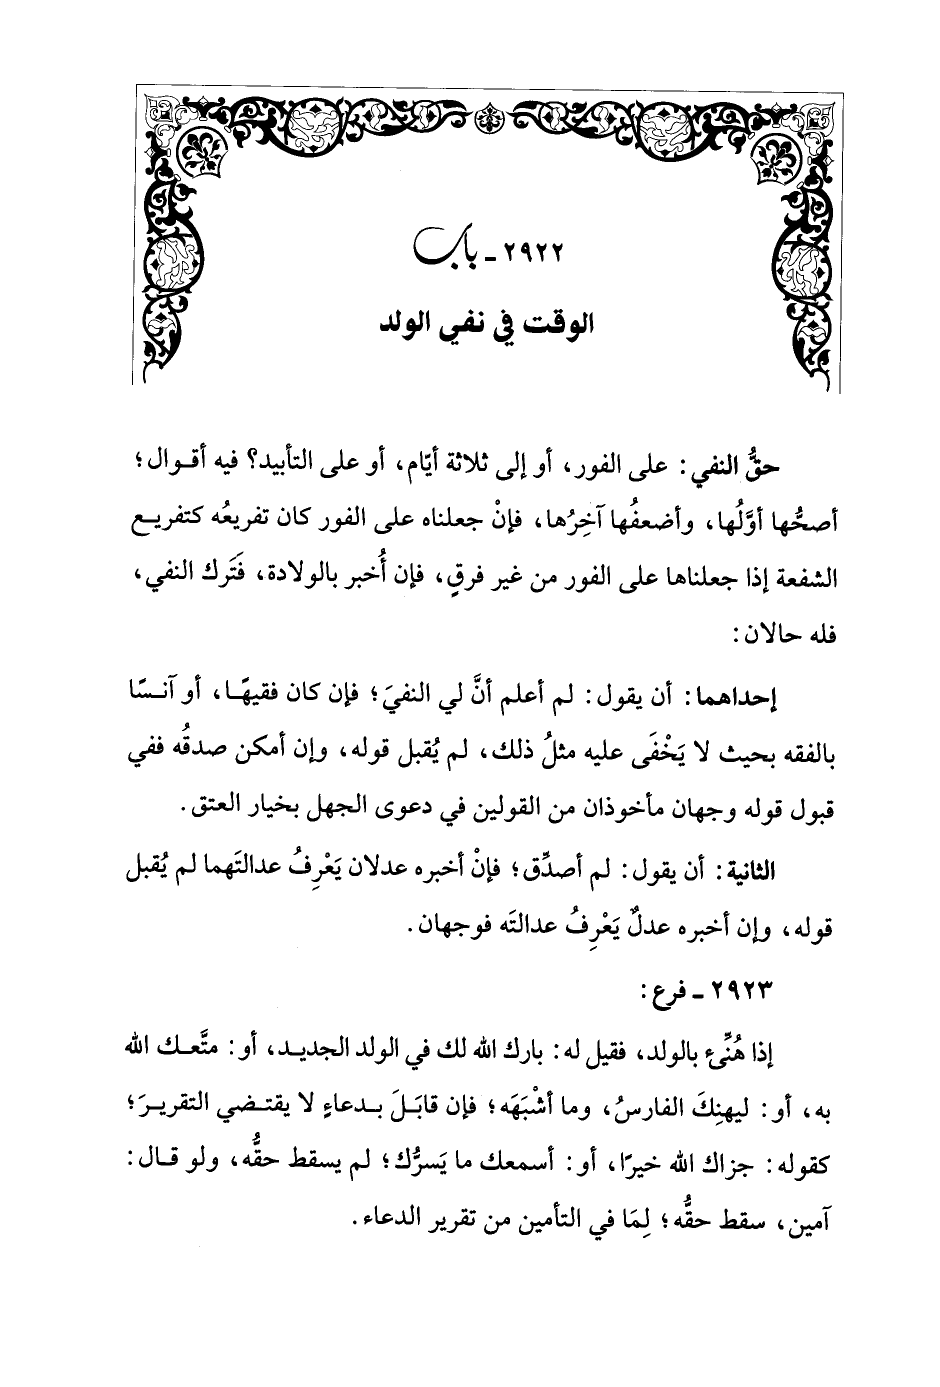 ٢٩٢٢ - باب
الوقت في نفي الولد
حقُّ النفي: على الفور، أو إلى ثلاثة أيّام، أو على التأبيد؟ فيه أقوال؛
أصحُّها أوَّلُها، وأضعفُها آخِرُها، فإنْ جعلناه على الفور كان تفريعُه كتفريع
الشفعة إذا جعلناها على الفور من غير فرقٍ، فإن أُخبر بالولادة، فَتَرك النفي،
فله حالان:
إحداهما: أن يقول: لم أعلم أنَّ لي النفيَ؛ فإن كان فقيهًا، أو آنسًا
بالفقه بحيث لا يَخْفَى عليه مثلُ ذلك، لم يُقبل قوله، وإن أمكن صدقُه ففي
قبول قوله وجهان مأخوذان من القولين في دعوى الجهل بخيار العتق.
الثانية: أن يقول: لم أصدِّق؛ فإنْ أخبره عدلان يَعْرِفُ عدالتَهما لم يُقبل
قوله، وإن أخبره عدلٌ يَعْرِفُ عدالتَه فوجهان.
٢٩٢٣ - فرع:
إذا هُنِّئ بالولد، فقيل له: بارك الله لك في الولد الجديد، أو: متَّعك الله
به، أو: ليهنِكَ الفارسُ، وما أشْبَهَه؛ فإن قابَلَ بدعاءٍ لا يقتضي التقريرَ؛
كقوله: جزاك الله خيرًا، أو: أسمعك ما يَسرُّك؛ لم يسقط حقُّه، ولو قال:
آمين، سقط حقُّه؛ لِمَا في التأمين من تقرير الدعاء.